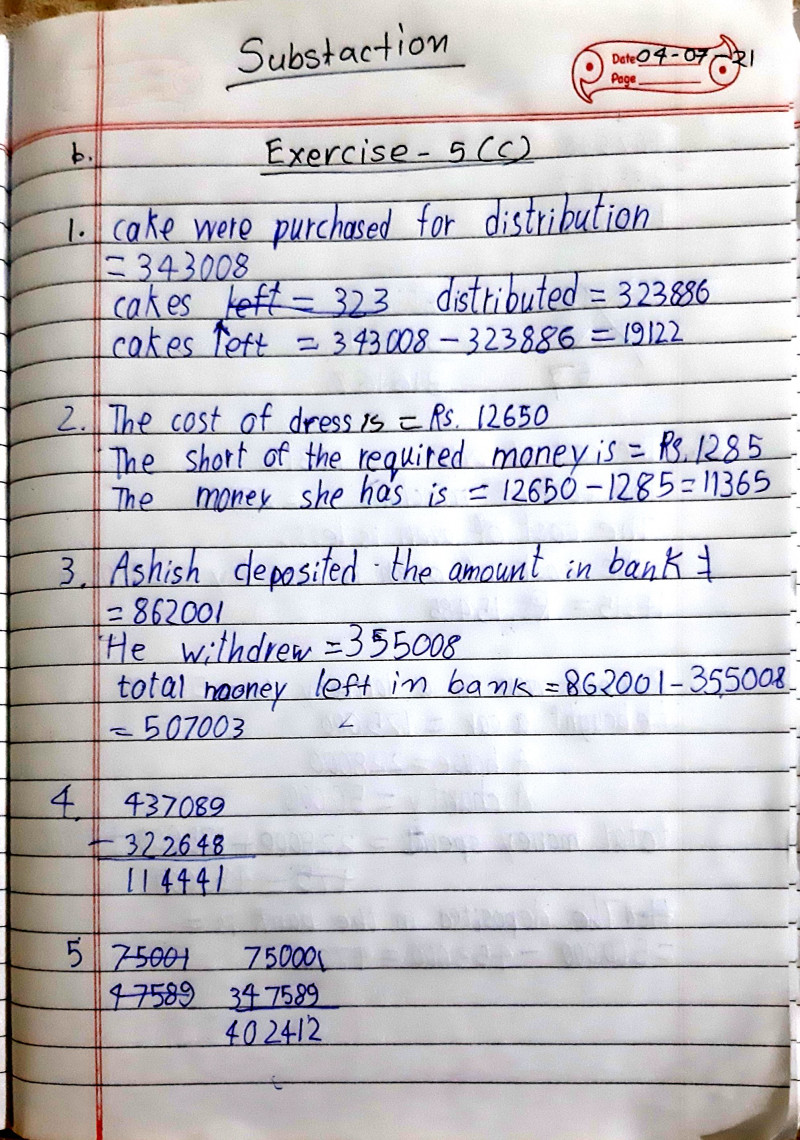 Substaction
Date 04-07-21
Page
b. Exercise - 5(C)
1. cake were purchased for distribution
= 343008
cakes left = 323 distributed = 323886
cakes left = 343008 - 323886 = 19122
2. The cost of dress is = Rs. 12650
The short of the required money is = Rs. 1285
The money she has is = 12650 - 1285 = 11365
3. Ashish deposited the amount in bank =
= 862001
He withdrew = 355008
total mooney left in bank = 862001 - 355008
= 507003
4. 437089
- 322648
114441
5 75001 750001
47589 347589
402412